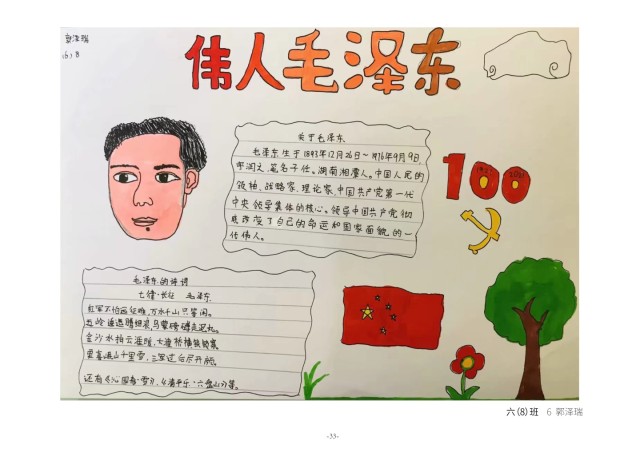 郭泽瑞
(6) 8
伟人毛泽东
关于毛泽东
毛泽东生于1893年12月26日~1976年9月9日,
字润之,笔名子任。湖南湘潭人。中国人民的
领袖,战略家,理论家,中国共产党第一代
中央领导集体的核心。领导中国共产党彻
底改变了自己的命运和国家面貌的一
代伟人。
100
毛泽东的诗词
七律·长征 毛泽东
红军不怕远征难,万水千山只等闲。
五岭逶迤腾细浪,乌蒙磅礴走泥丸。
金沙水拍云崖暖,大渡桥横铁索寒。
更喜岷山千里雪,三军过后尽开颜。
还有《沁园春·雪》,《清平乐·六盘山》等。
六(8)班 6 郭泽瑞
-33-